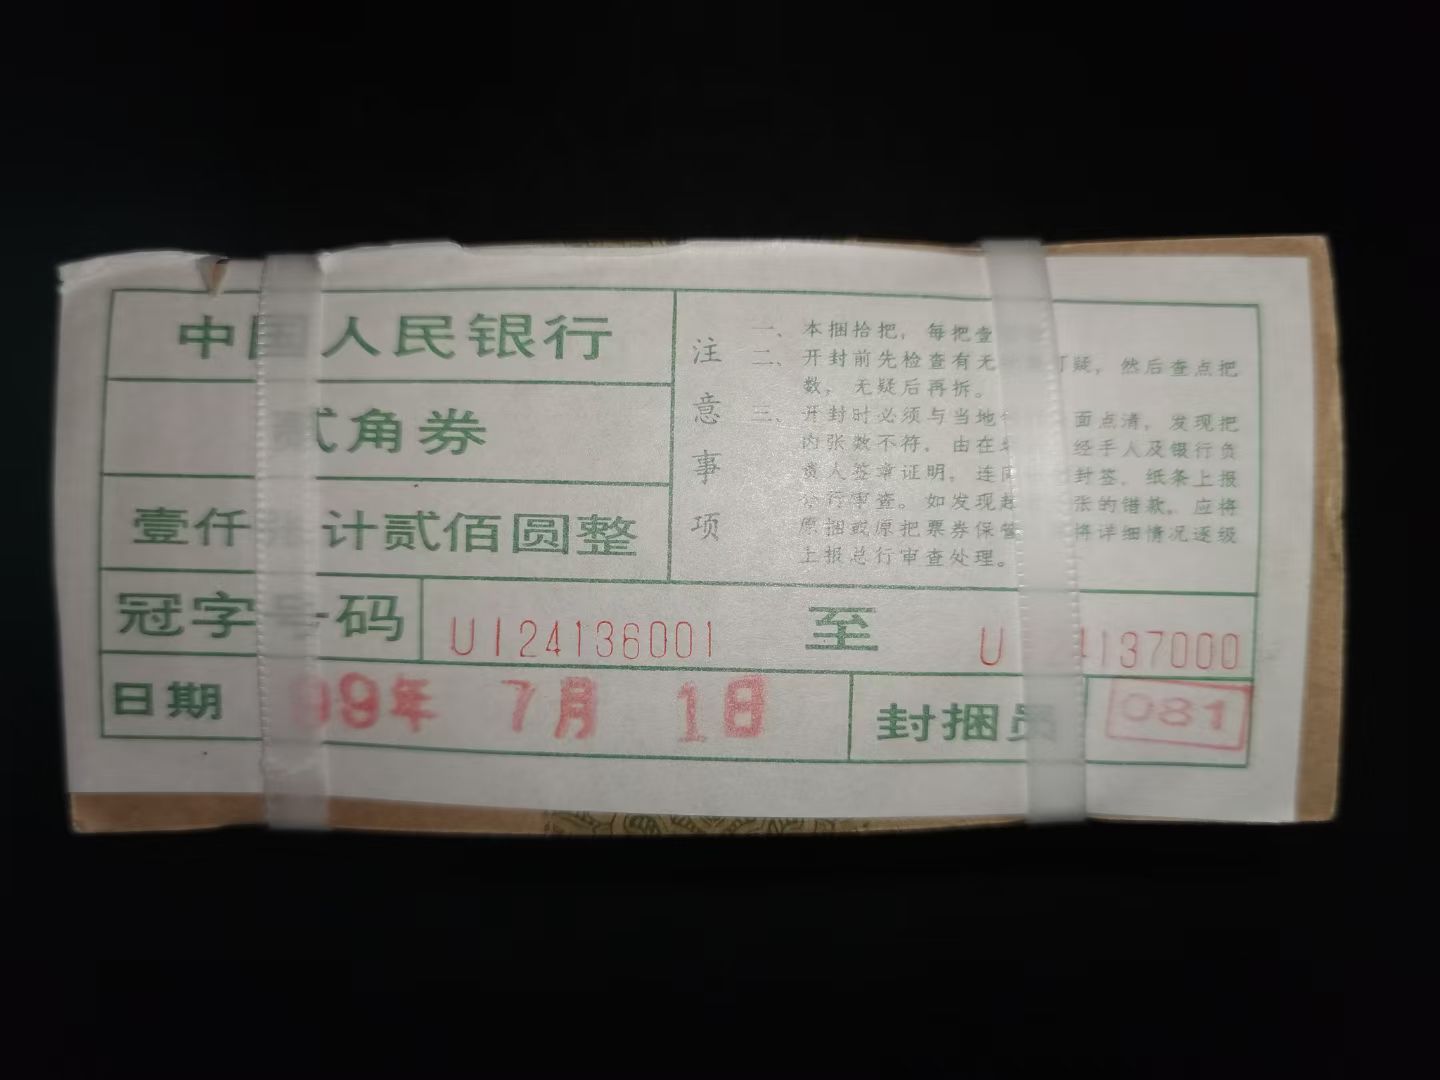 中国人民银行
贰角券
壹仟 计贰佰圆整
注意事项
一、本捆拾把，每把壹
二、开封前先检查有无 可疑，然后查点把
数，无疑后再拆。
三、开封时必须与当地 面点清，发现把
内张数不符，由在 经手人及银行负
责人签章证明，连同 封签、纸条上报
分行审查。如发现 张的错款，应将
原捆或原把票券保管 将详细情况逐级
上报总行审查处理。
冠字号码 U124136001 至 U 4137000
日期 99年 7月 1日 封捆员 081